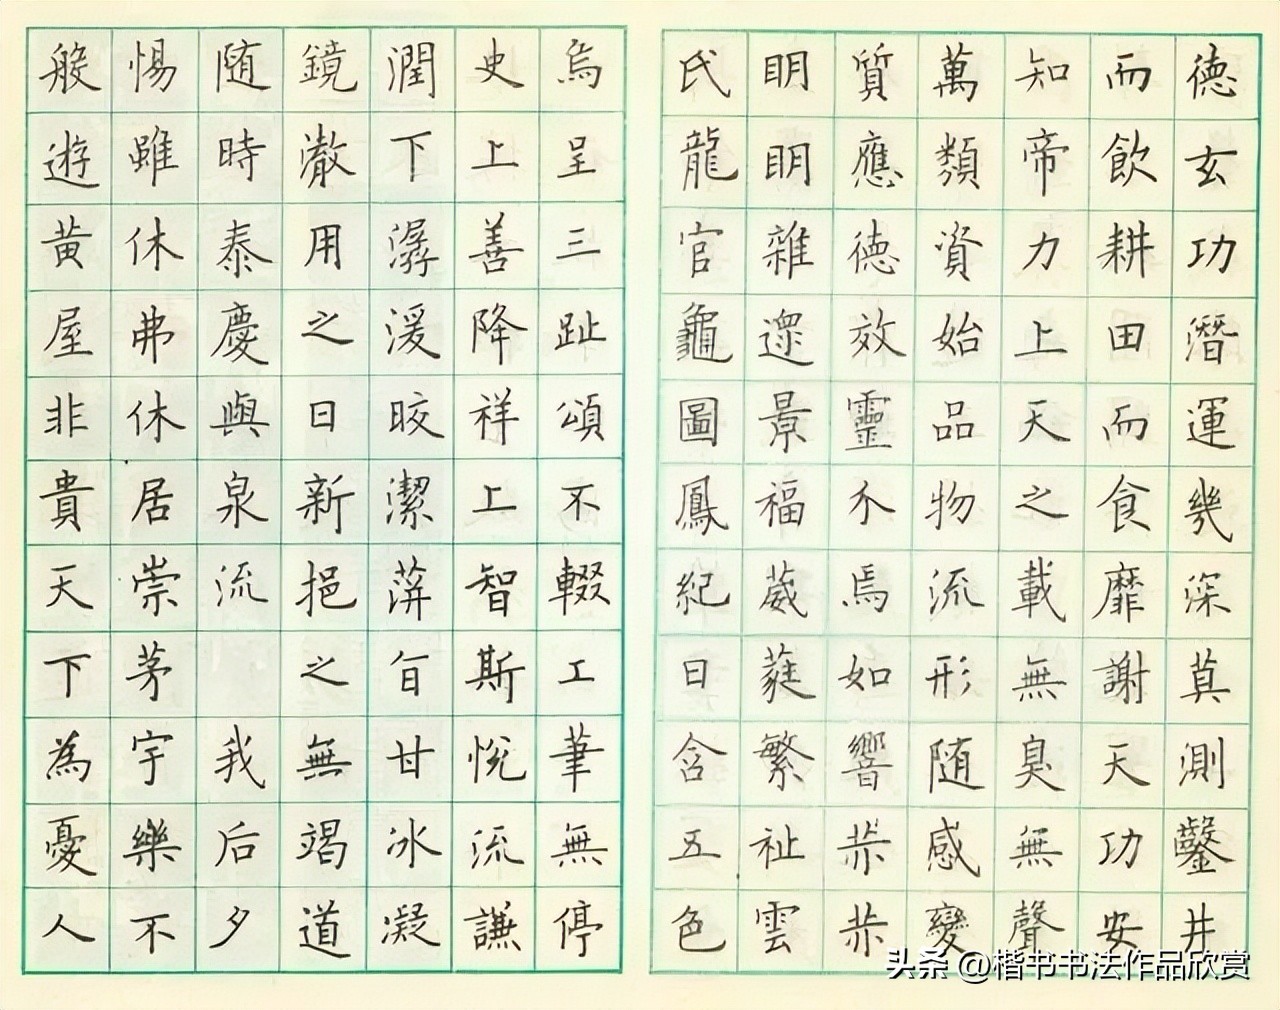 德玄功潛運幾深莫測鑿井
而飲耕田而食靡謝天功安
知帝力上天之載無臭無聲
萬類資始品物流形随感變
質應德效靈介焉如響赫赫
明明雜遝景福葳蕤繁祉雲
氏龍官龜圖鳳紀日含五色
烏呈三趾頌不輟工筆無停
史上善降祥上智斯悅流謙
潤下潺湲晈潔蓱旨甘冰凝
鏡澈用之日新挹之無竭道
随時泰慶與泉流 我后夕
惕雖休弗休居崇茅宇樂不
般遊黃屋非貴天下為憂人
头条 @楷书书法作品欣赏